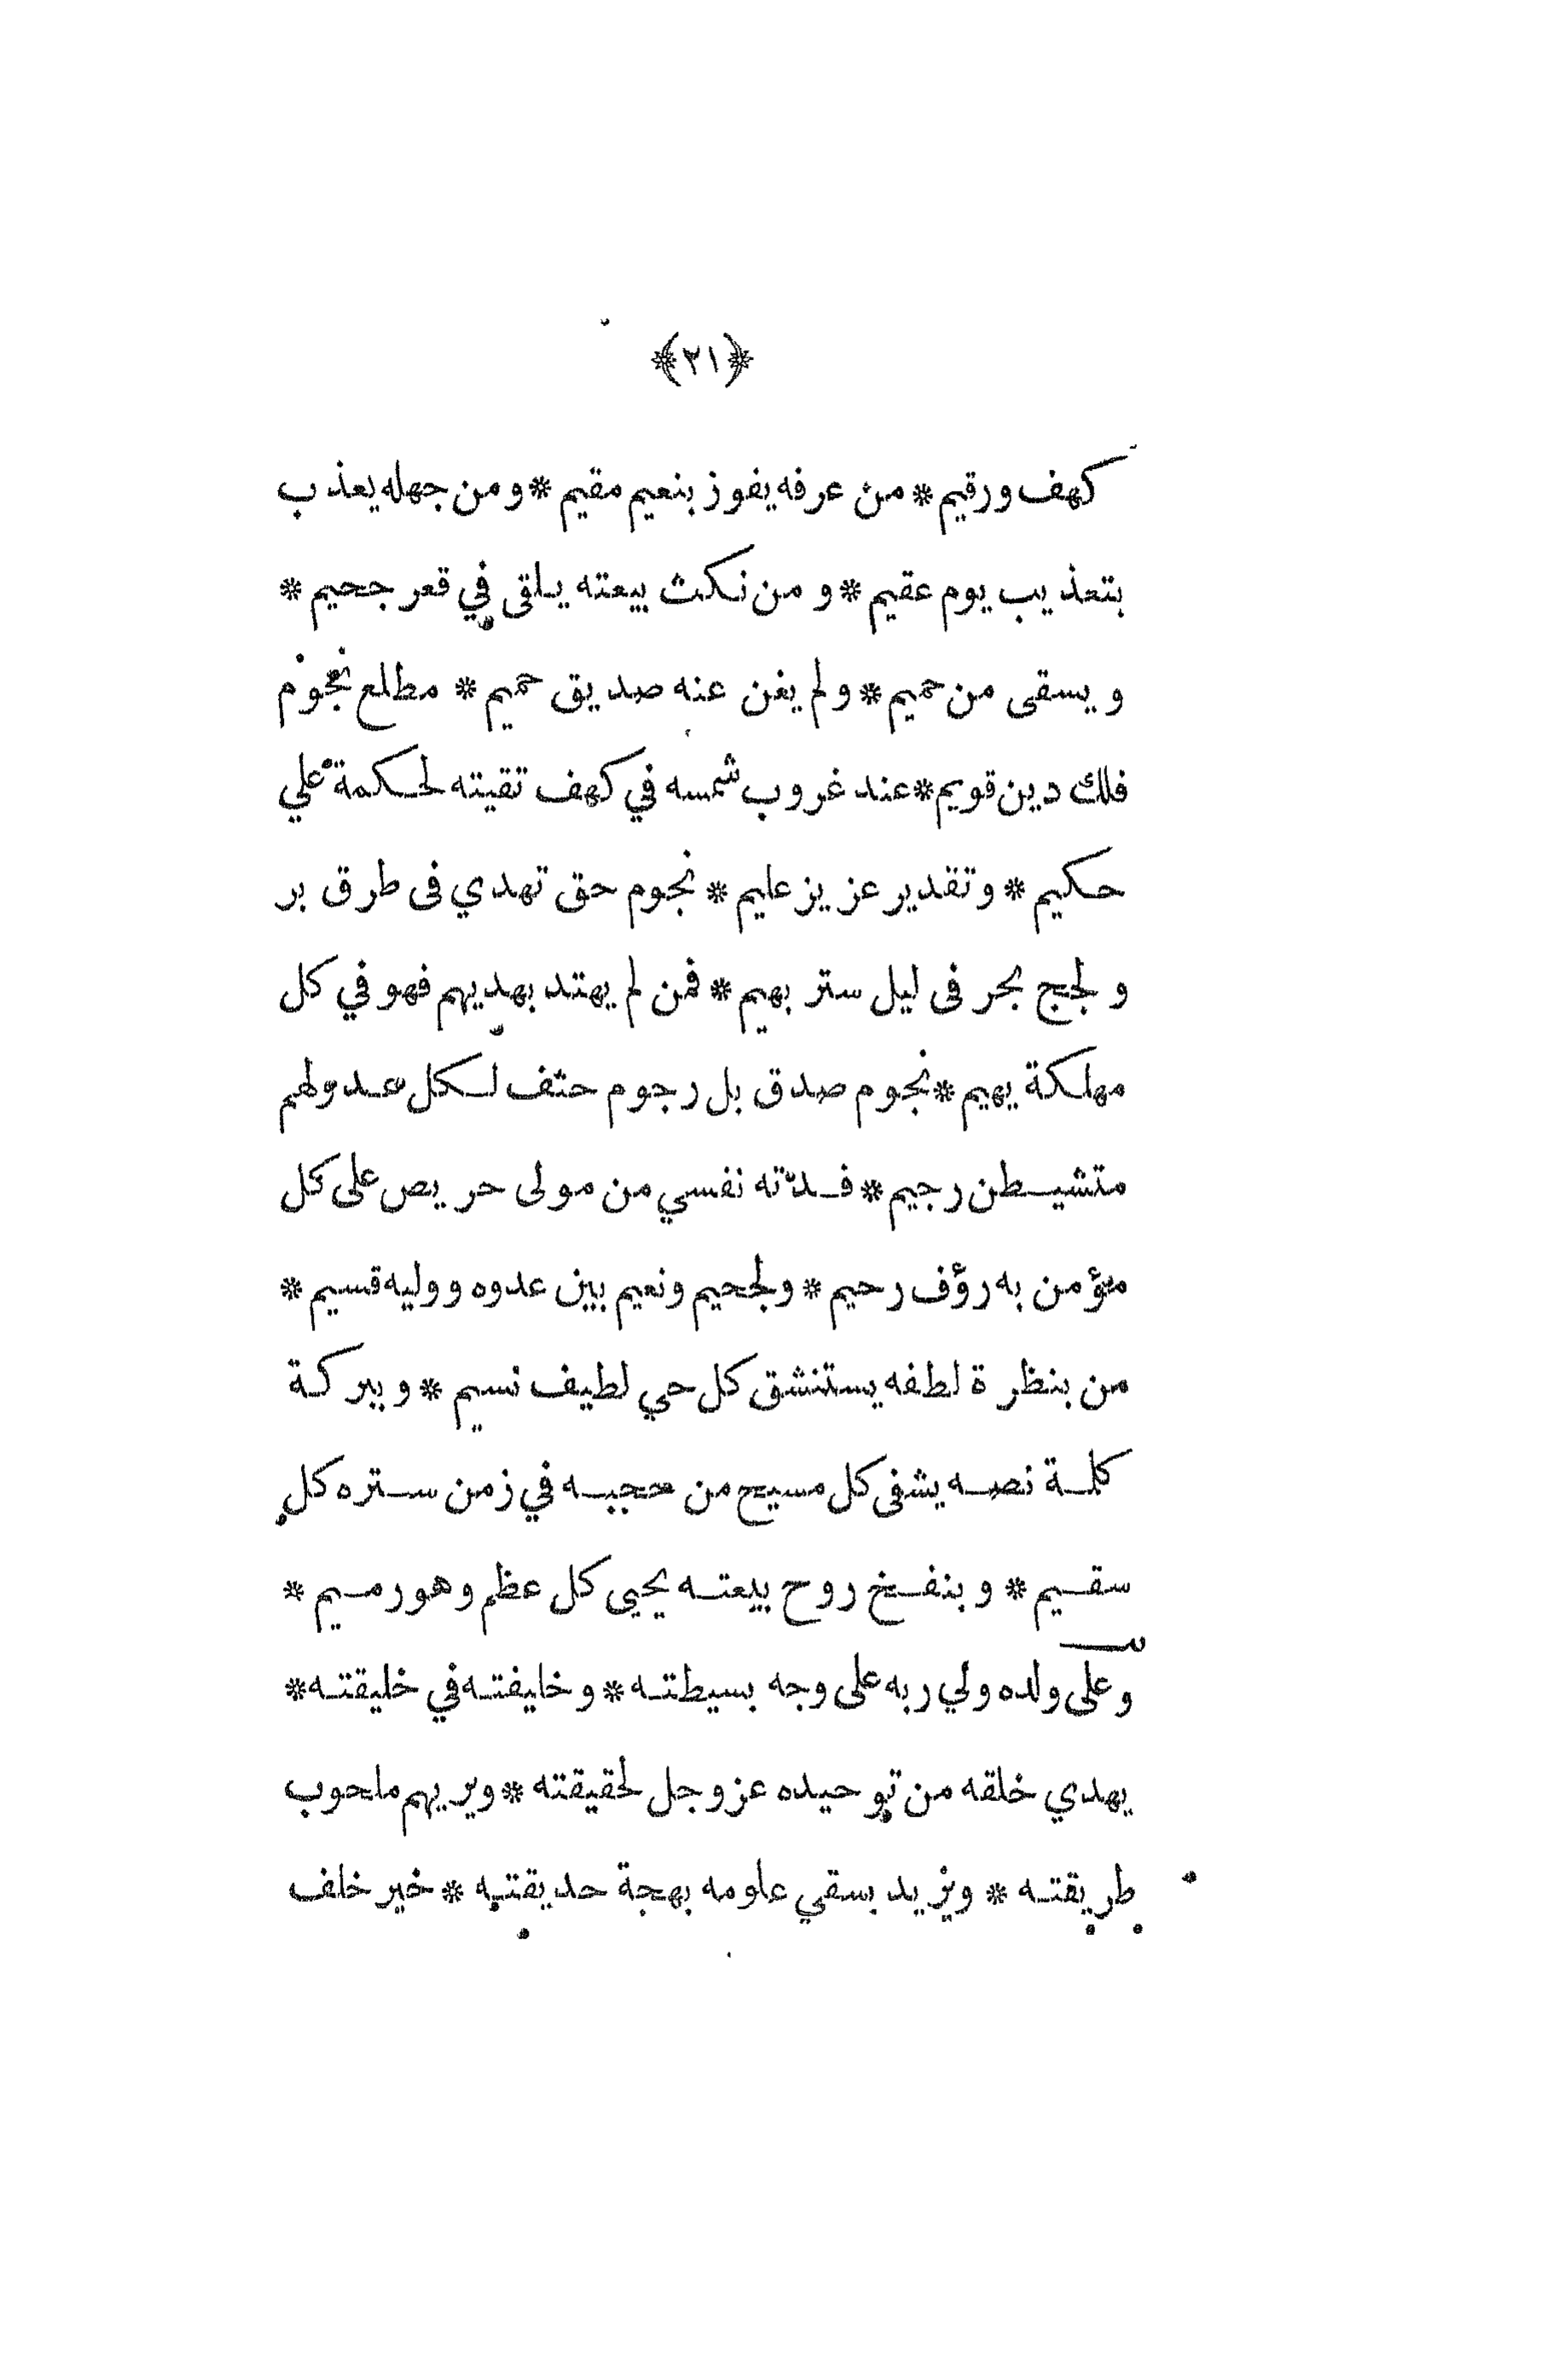 ﴿٢١﴾
كهف ورقيم * من عرفه يفوز بنعيم مقيم * ومن جهله يعذب
بتعذيب يوم عقيم * و من نكث بيعته يلقى في قعر جحيم *
و يسقى من حميم * ولم يغن عنه صديق حميم * مطلع نجوم
فلك دين قويم * عند غروب شمسه في كهف تقيته لحكمة علي
حكيم * وتقدير عزيز عليم * نجوم حق تهدي فى طرق بر
و لجج بحر فى ليل ستر بهيم * فمن لم يهتد بهديهم فهو في كل
مهلكة يهيم * نجوم صدق بل رجوم حتف لكل عدو لهم
متشيطن رجيم * فدته نفسي من مولى حريص على كل
مؤمن به رؤف رحيم * ولجحيم ونعيم بين عدوه ووليه قسيم *
من بنظرة لطفه يستنشق كل حي لطيف نسيم * وببركة
كلمة نصه يشفى كل مسيح من حجبه في زمن ستره كل
سقيم * و بنفخ روح بيعته يحيى كل عظم وهو رميم *
وعلى ولده ولي ربه على وجه بسيطته * و خليفته في خليقته *
يهدي خلقه من توحيده عز وجل لحقيقته * ويريهم ملحوب
طريقته * ويزيد بسقي علومه بهجة حديقته * خير خلف